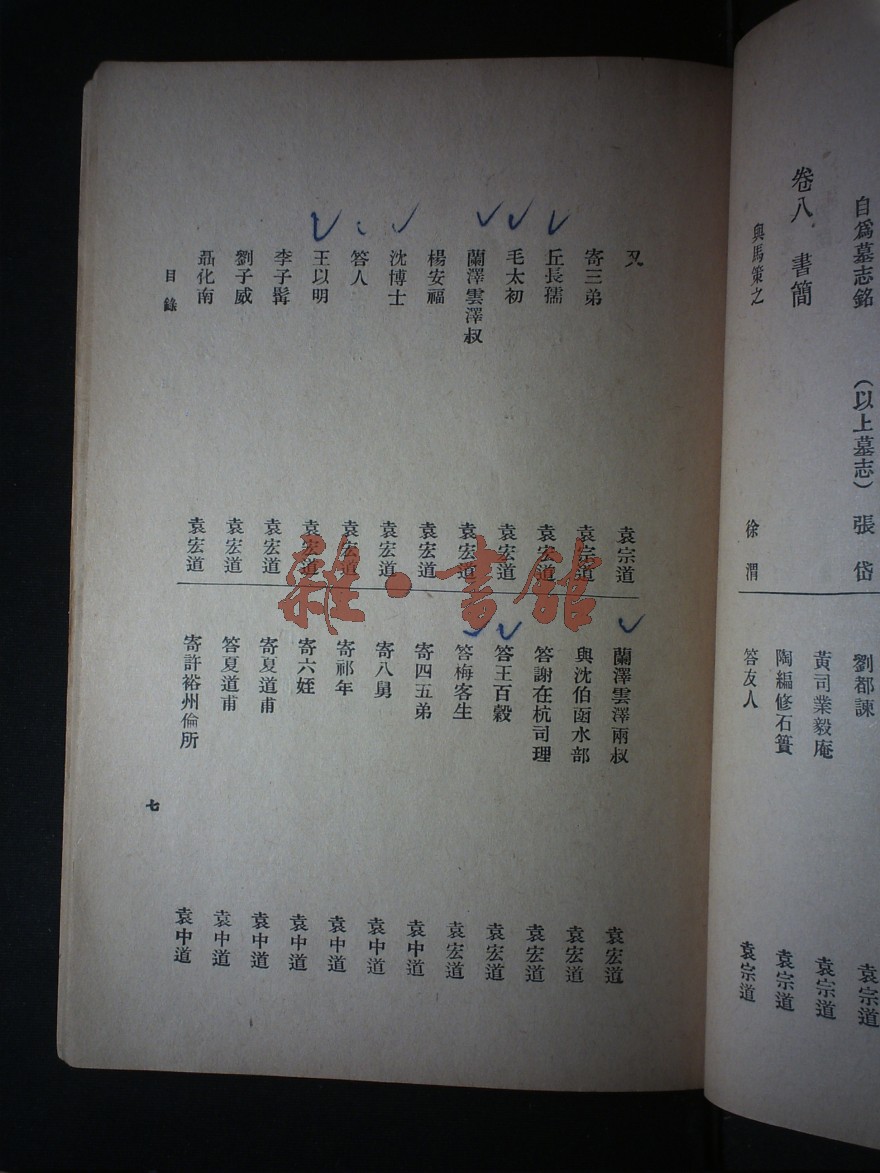 自爲墓志銘 (以上墓志) 張岱
卷八 書簡
與馬策之 徐渭
劉都諫 袁宗道
黃司業毅庵 袁宗道
陶編修石簣 袁宗道
答友人 袁宗道
又 袁宗道
寄三弟 袁宗道
丘長孺 袁宏道
毛太初 袁宏道
蘭澤雲澤叔 袁宏道
楊安福 袁宏道
沈博士 袁宏道
答人 袁宏道
王以明 袁宏道
李子髯 袁宏道
劉子威 袁宏道
聶化南 袁宏道
蘭澤雲澤兩叔 袁宏道
與沈伯函水部 袁宏道
答謝在杭司理 袁宏道
答王百穀 袁宏道
答梅客生 袁宏道
寄四五弟 袁中道
寄八舅 袁中道
寄祁年 袁中道
寄六姪 袁中道
寄夏道甫 袁中道
答夏道甫 袁中道
寄許裕州倫所 袁中道
目錄
七
雜·書館